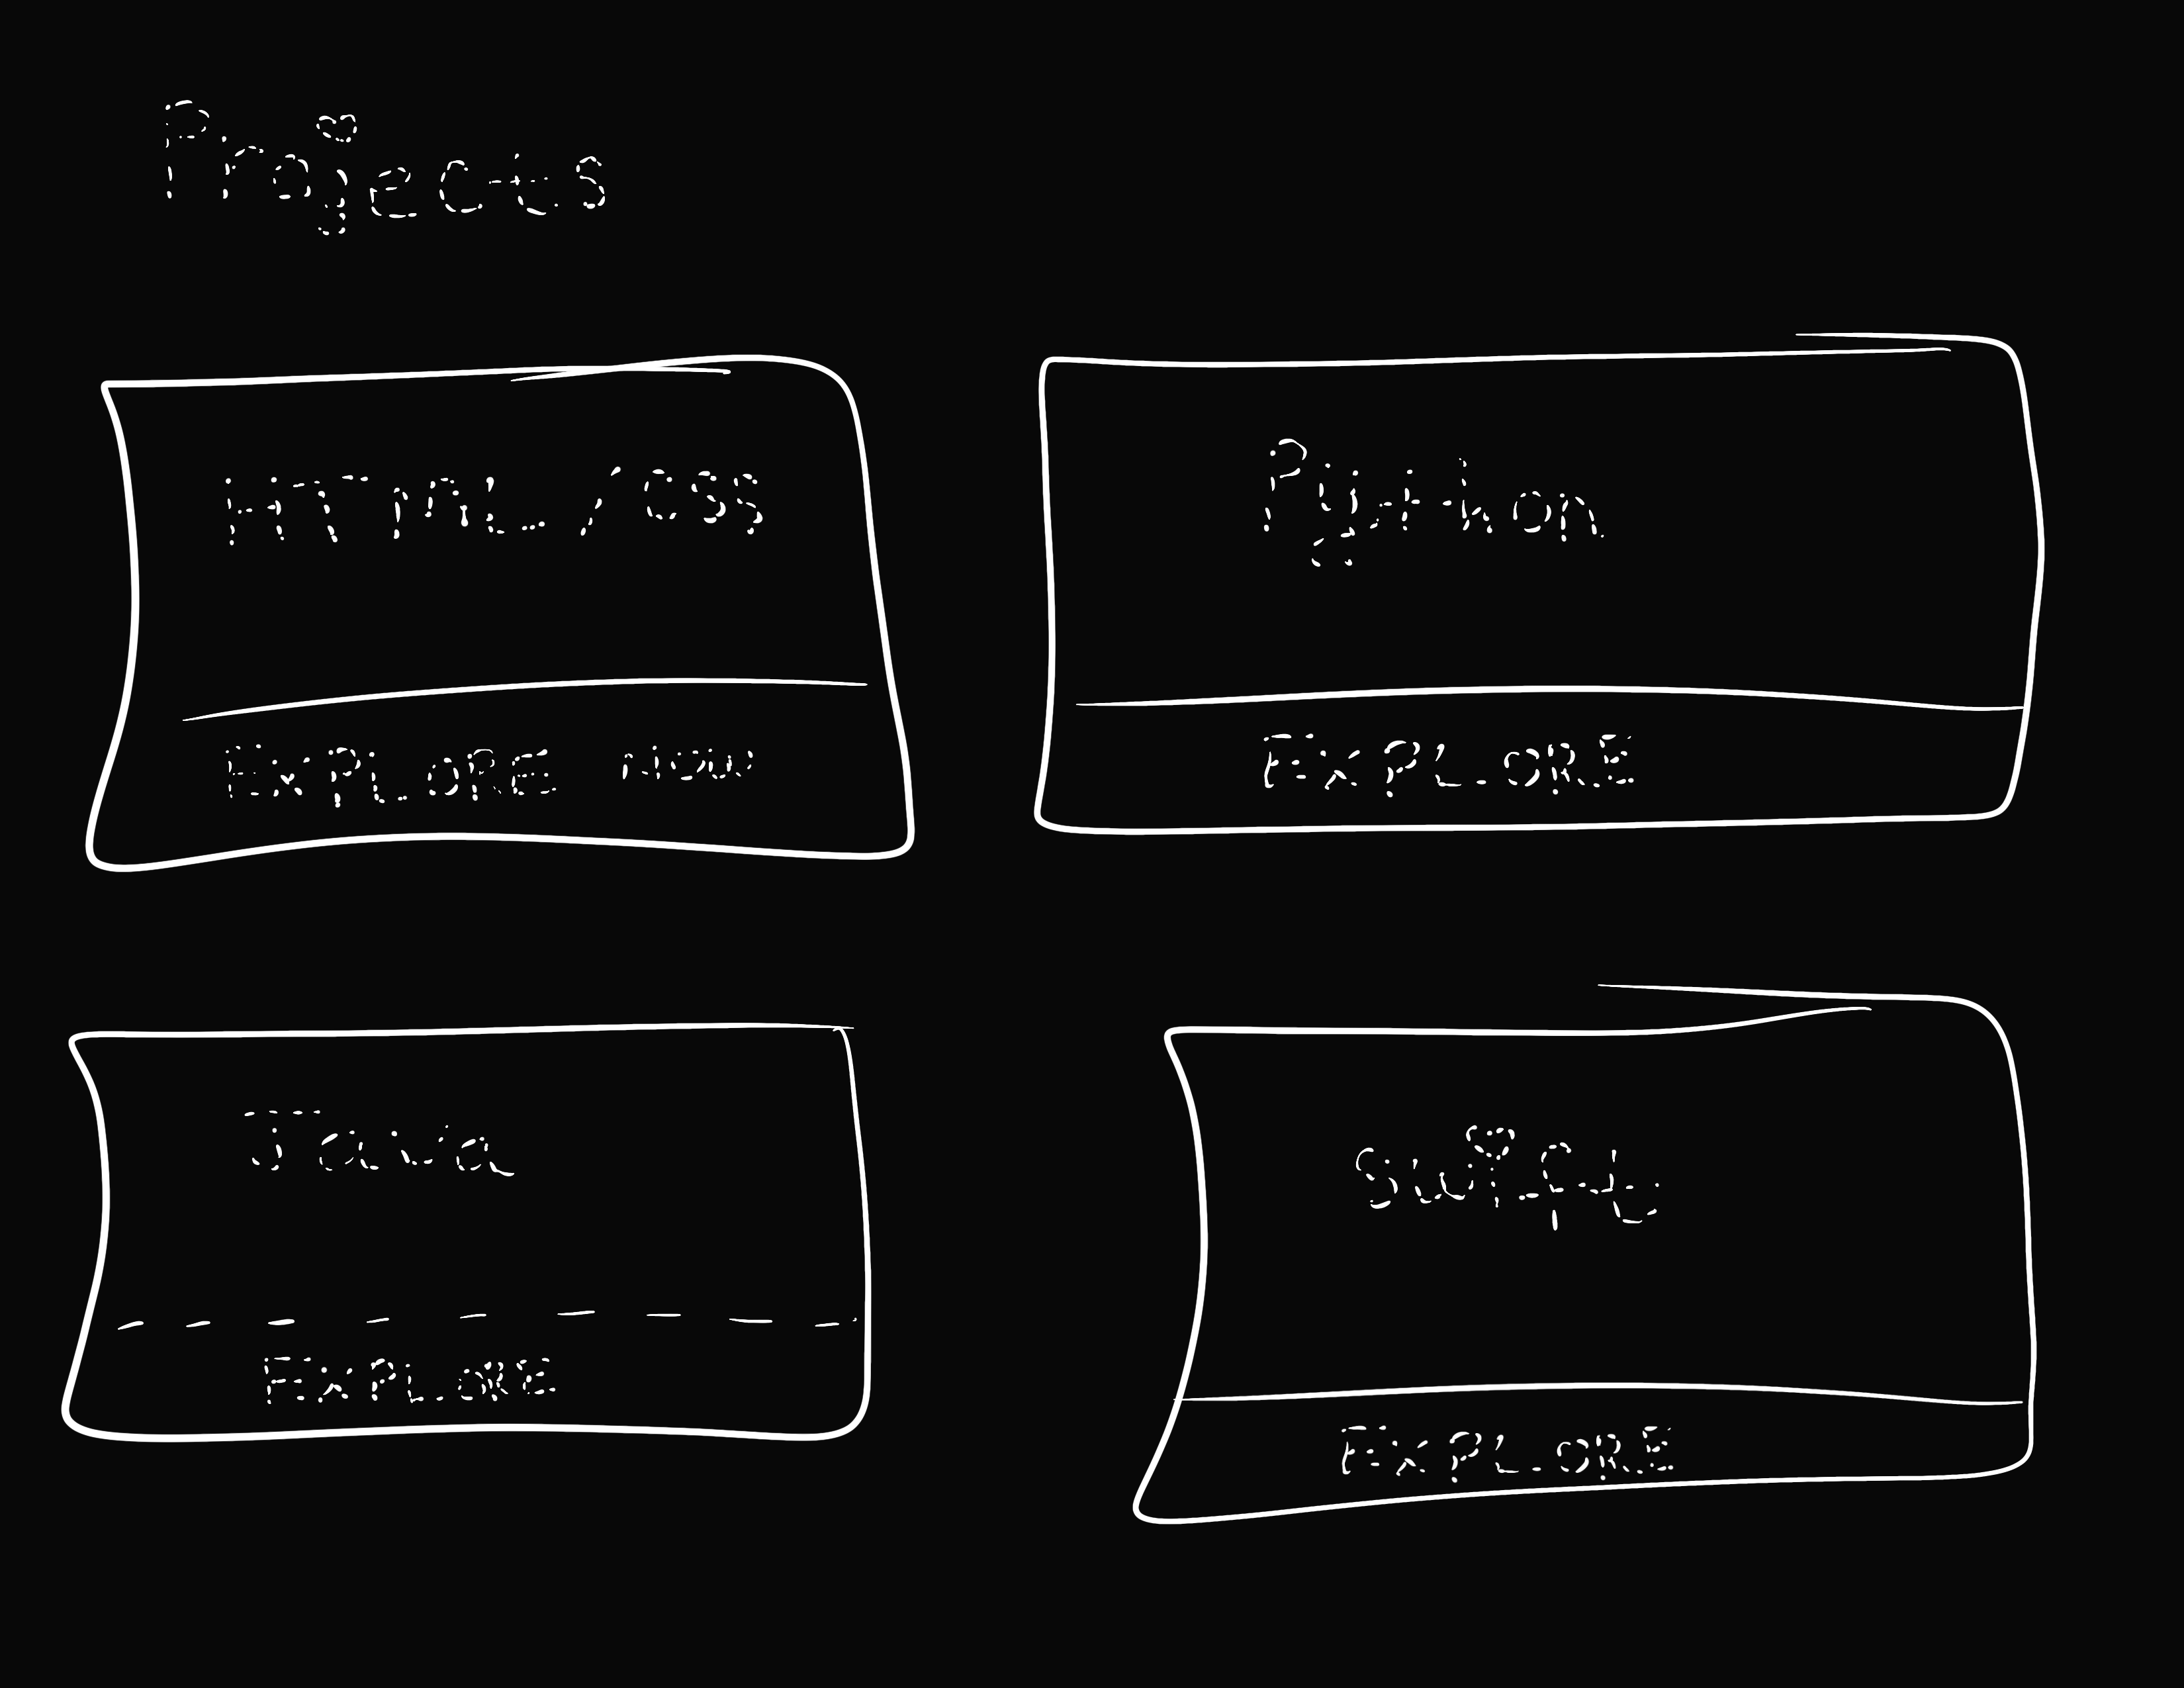 Projects
HTML/CSS
EXPLORE NOW
Python
EXPLORE
Java
EXPLORE
Swift
EXPLORE